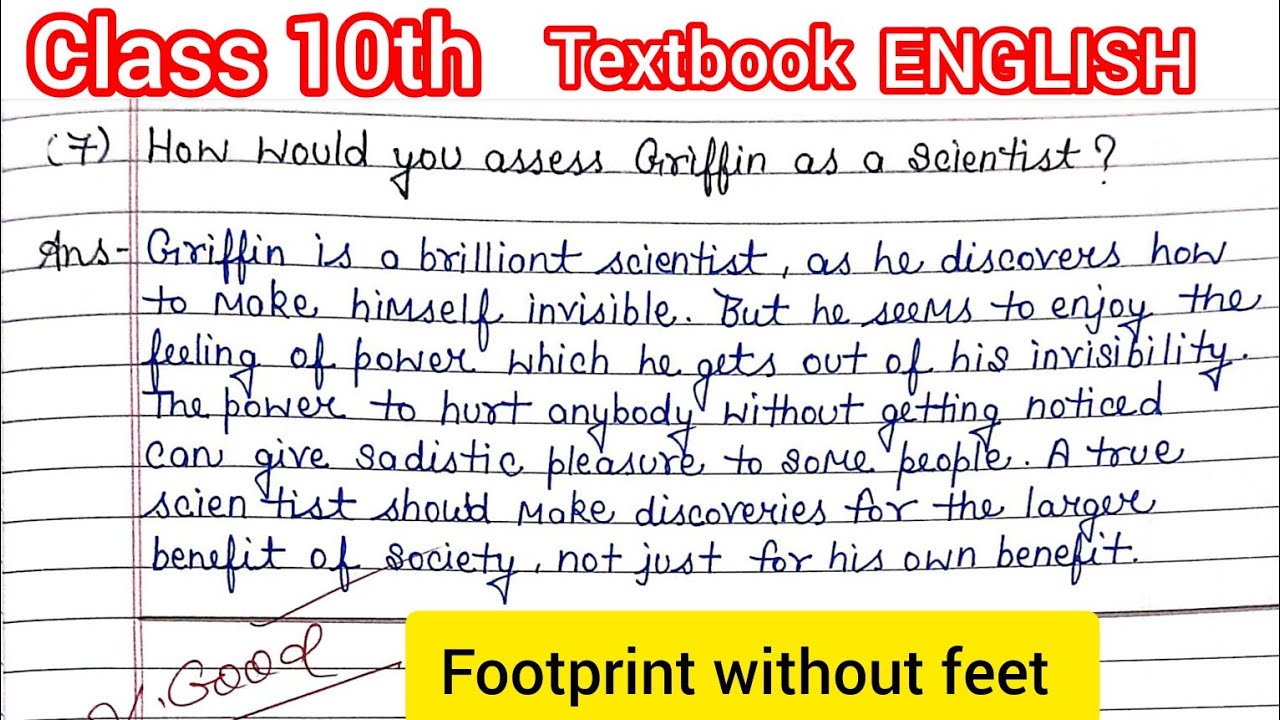 Class 10th Textbook ENGLISH
(7) How would you assess Griffin as a scientist?
Ans- Griffin is a brilliant scientist, as he discovers how
to make himself invisible. But he seems to enjoy the
feeling of power which he gets out of his invisibility.
The power to hurt anybody without getting noticed
can give sadistic pleasure to some people. A true
scientist should make discoveries for the larger
benefit of society, not just for his own benefit.
V. Good
Footprint without feet